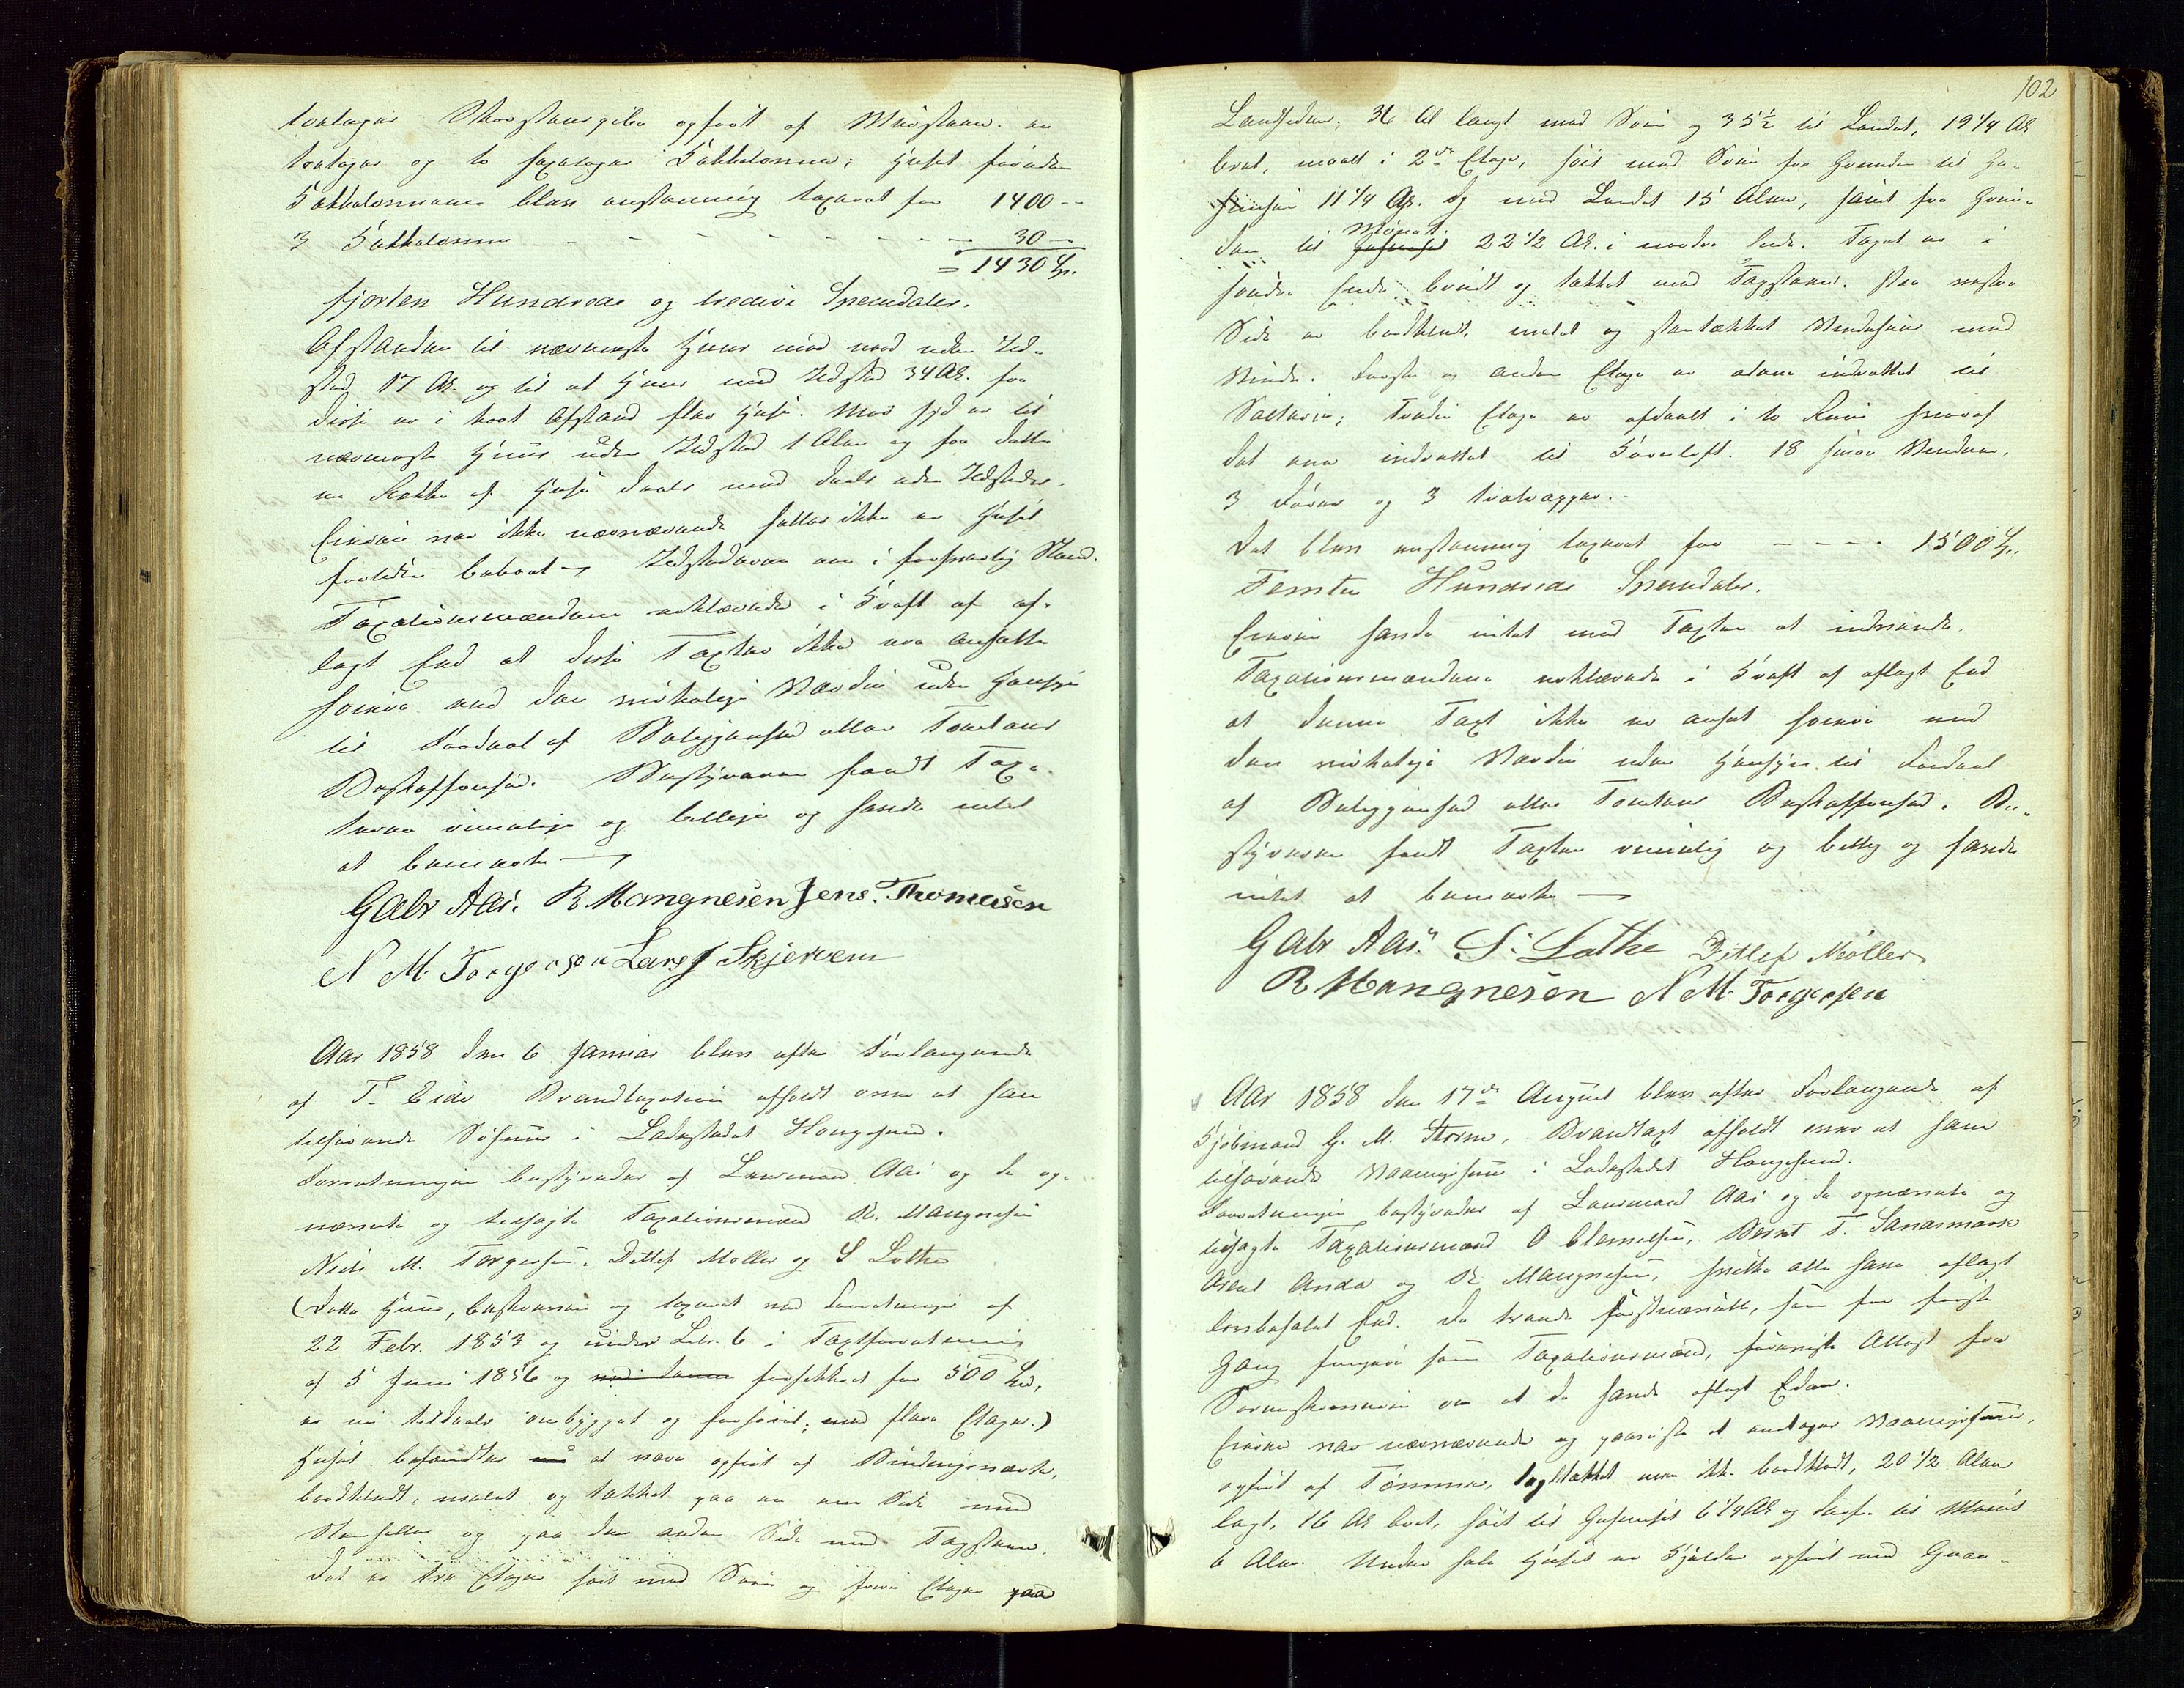 toetages Skorsteenspibe opført af Muursteen. en
toetages og to enetages Kakkelovne; Huset foruden
Kakkelovnene blev enstemmig taxeret for 1400 -
3 Kakkelovne - - - - - - - - 30 -
= 1430 Sp.
fjorten Hundrede og tredive Speciedaler.
Afstanden til nærmeste Huus mod nord uden Ild-
sted 17 Al. og til et Huus med Ildsted 34 Al. fra
disse er i kort Afstand flere Huse. Mod syd er til
nærmeste Huus uden Ildsted 1 Alen og fra dette
en Række af Huse deels med deels uden Ildsteder.
Eieren var ikke nærværende heller ikke er Huset
forliden beboet - Ildstederne ere i forsvarlig Stand.
Taxationsmændene erklærede i Kraft af af-
lagt Eed at disse Taxter ikke ere ansatte
høiere end den virkelige Værdie uden Hensyn
til Fordeel af Beliggenhed eller Tomtens
Beskaffenhed. Bestyreren fandt Tax-
terne rimelige og billige og havde intet
at bemærke -
Gabr Aas. R Mangnesen Jens. Thomesen
N M. Torgersen Lars J Skjervem
Aar 1858 den 6 Januar blev efter Forlangende
af T. Eide Brandtaxation afholdt over et ham
tilhørende Søhuus i Ladestedet Haugesund.
Forretningen bestyredes af Lensmand Aas og de op-
nævnte og tilsagte Taxationsmænd R. Mangnesen
Niels M. Torgersen, Ditlef Møller og S Lothe
(Dette Huus, beskreven og taxeret ved Forretninger af
22 Febr. 1853 og under Litr. b i Taxtforretning
af 5 Juni 1856 og forsikkret for 500 Spd,
er nu tildeels ombygget og forhøiet, med flere Etager.)
Huset befandtes at være opført af Bindingsværk,
bordklædt, malet og tækket paa en ene Side med
Steenheller og paa den anden Side med Tagsteen.
Det er tre Etager høit mod Søen og Etager paa
102
Landsiden, 36 Al langt mod Søen og 35 1/2 til Landet, 19 1/4 Al
bredt, maalt i 2den Etage, høit mod Søen fra Grunden til Ge-
simsen 11 1/4 Al. og mod Landet 15 Alen, samt fra Grun-
den til Mønet 22 1/2 Al. i nordre Ende. Taget er i
søndre Ende brudt og tækket med Tagsteen. Paa vestre
Side er bordklædt, malet og steentækket Vindehuus med
Vinde. Første og anden Etage er alene indrettet til
Salterie; Tredie Etage er afdeelt i to Rum hvoraf
det ene indrettet til Kornloft. 18 smaa Vinduer,
3 Døre og 3 Trætrapper.
Det blev enstemmig taxeret for - - - - 1500 Sp.
Femten Hundrede Speciedaler.
Eieren havde intet mod Taxten at indvende.
Taxationsmændene erklærede i Kraft af aflagt Eed
at denne Taxt ikke er ansat høiere end
den virkelige Værdie uden Hensyn til Fordeel
af Beliggenhed eller Tomtens Beskaffenhed. Be-
styreren fandt Taxten rimelig og billig og havde
intet at bemærke -
Gabr Aas. S. Lothe Ditlef Møller
R Mangnesen N M. Torgersen
Aar 1858 den 17de August blev efter Forlangende af
Kjøbmand G. M. Storm, Brandtaxt afholdt over et ham
tilhørende Vaaningshuus i Ladestedet Haugesund.
Forretningen bestyredes af Lensmand Aas og de opnævnte og
tilsagte Taxationsmænd O Clemetsen, Bernt T.
Arent Anda og R Mangnesen, hvilke alle have aflagt
lovbefalet Eed. De trende førstnævnte, som for første
Gang fungere som Taxationsmænd, foreviste Attest fra
Sorenskriveren om at de havde aflagt Eden.
Eieren var nærværende og paaviste et eenetages Vaaningshuus,
opført af Tømmer, tagtækket men ikke bordklædt, 20 1/2 Alen
langt, 16 Al bredt, høit til Gesimset 6 1/4 Al og derfra til Mønet
6 Alen. Under hele Huset er Kjelder opført med Graa-